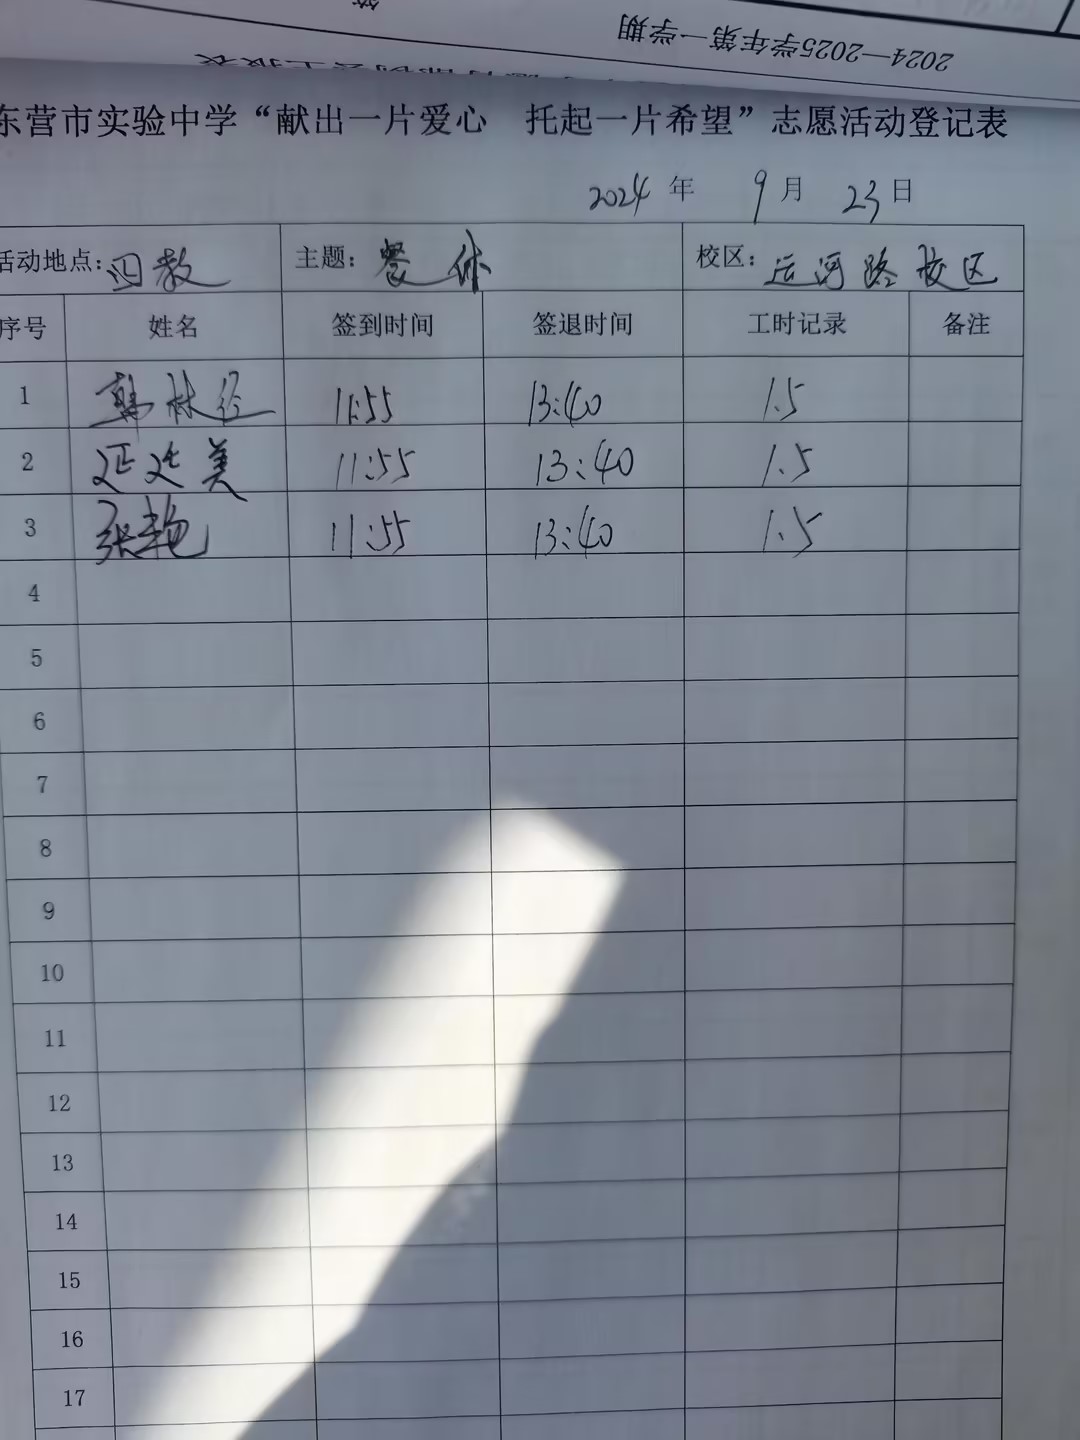 2024—2025学年第一学期
东营市实验中学“献出一片爱心 托起一片希望”志愿活动登记表
2024 年 9 月 23 日
活动地点：四教 主题：餐休 校区：运河路校区
序号 姓名 签到时间 签退时间 工时记录 备注
1 韩林经 11:55 13:40 1.5
2 延廷美 11:55 13:40 1.5
3 张艳 11:55 13:40 1.5
4
5
6
7
8
9
10
11
12
13
14
15
16
17